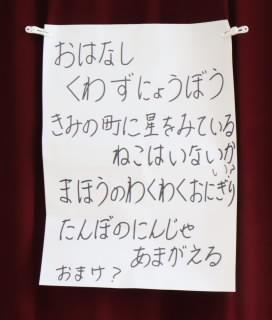 おはなし
くわずにょうぼう
きみの町に星をみている
ねこはいないかい?
まほうのわくわくおにぎり
たんぼのにんじゃ
あまがえる
おまけ?